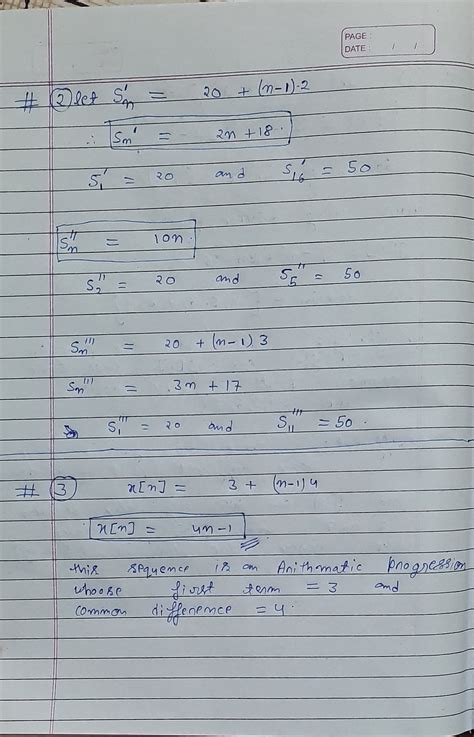 PAGE :
DATE : / /
# ② let Sn' = 20 + (n-1)·2
∴ Sn' = 2n+18·
S1' = 20 and S16' = 50
Sn'' = 10n·
S2'' = 20 and S5'' = 50
Sn''' = 20 + (n-1) 3
Sn''' = 3n + 17
S1''' = 20 and S11''' = 50·
# ③ x[n] = 3 + (n-1) 4
x[n] = 4n-1
this sequence is an Arithmatic progression
whoose first term = 3 and
common difference = 4·